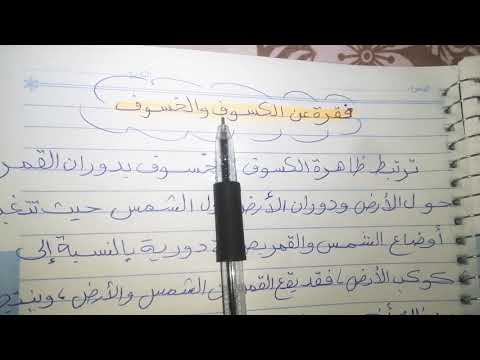 فقرة عن الكسوف والخسوف
ترتبط ظاهرة الكسوف بدوران القمر
حول الأرض ودوران الأرض الشمس حيث تتغير
أوضاع الشمس والقمر دورية بالنسبة إلى
كوكب الأرض، فقد يقع القمر الشمس والأرض، وينتج